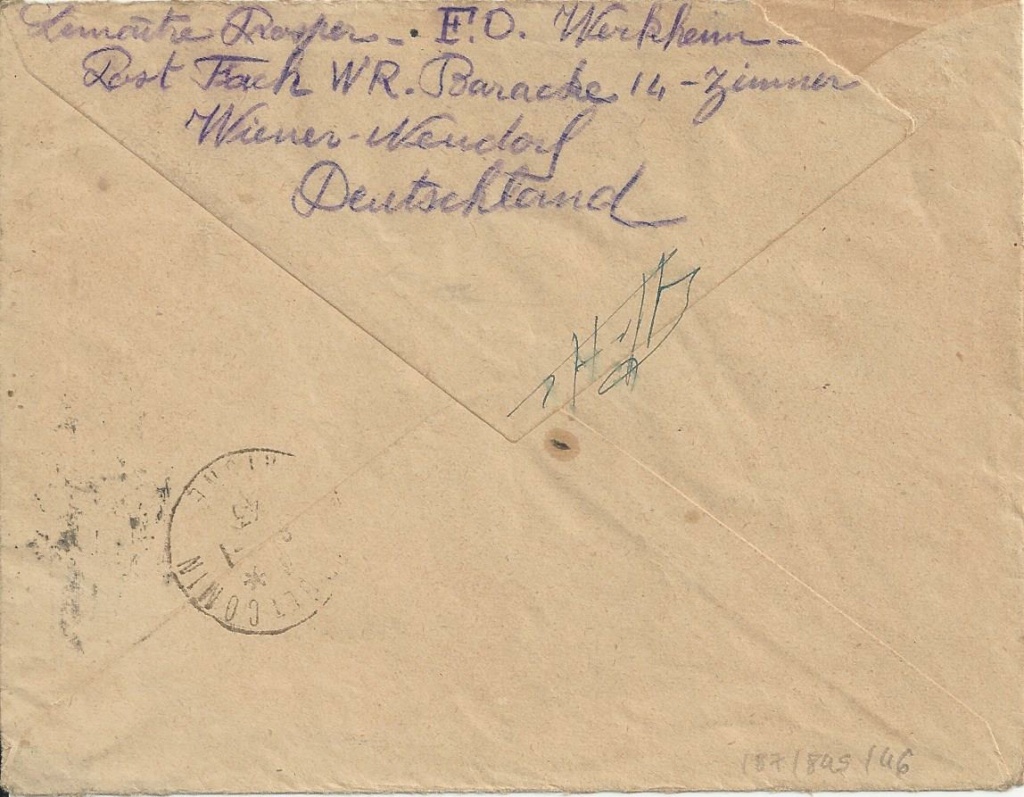 Lemaître Prosper - . F.O. Werkheim -
Post Fach WR. Baracke 14 - Zimmer
Wiener-Neudorf
Deutschland
187/845/46